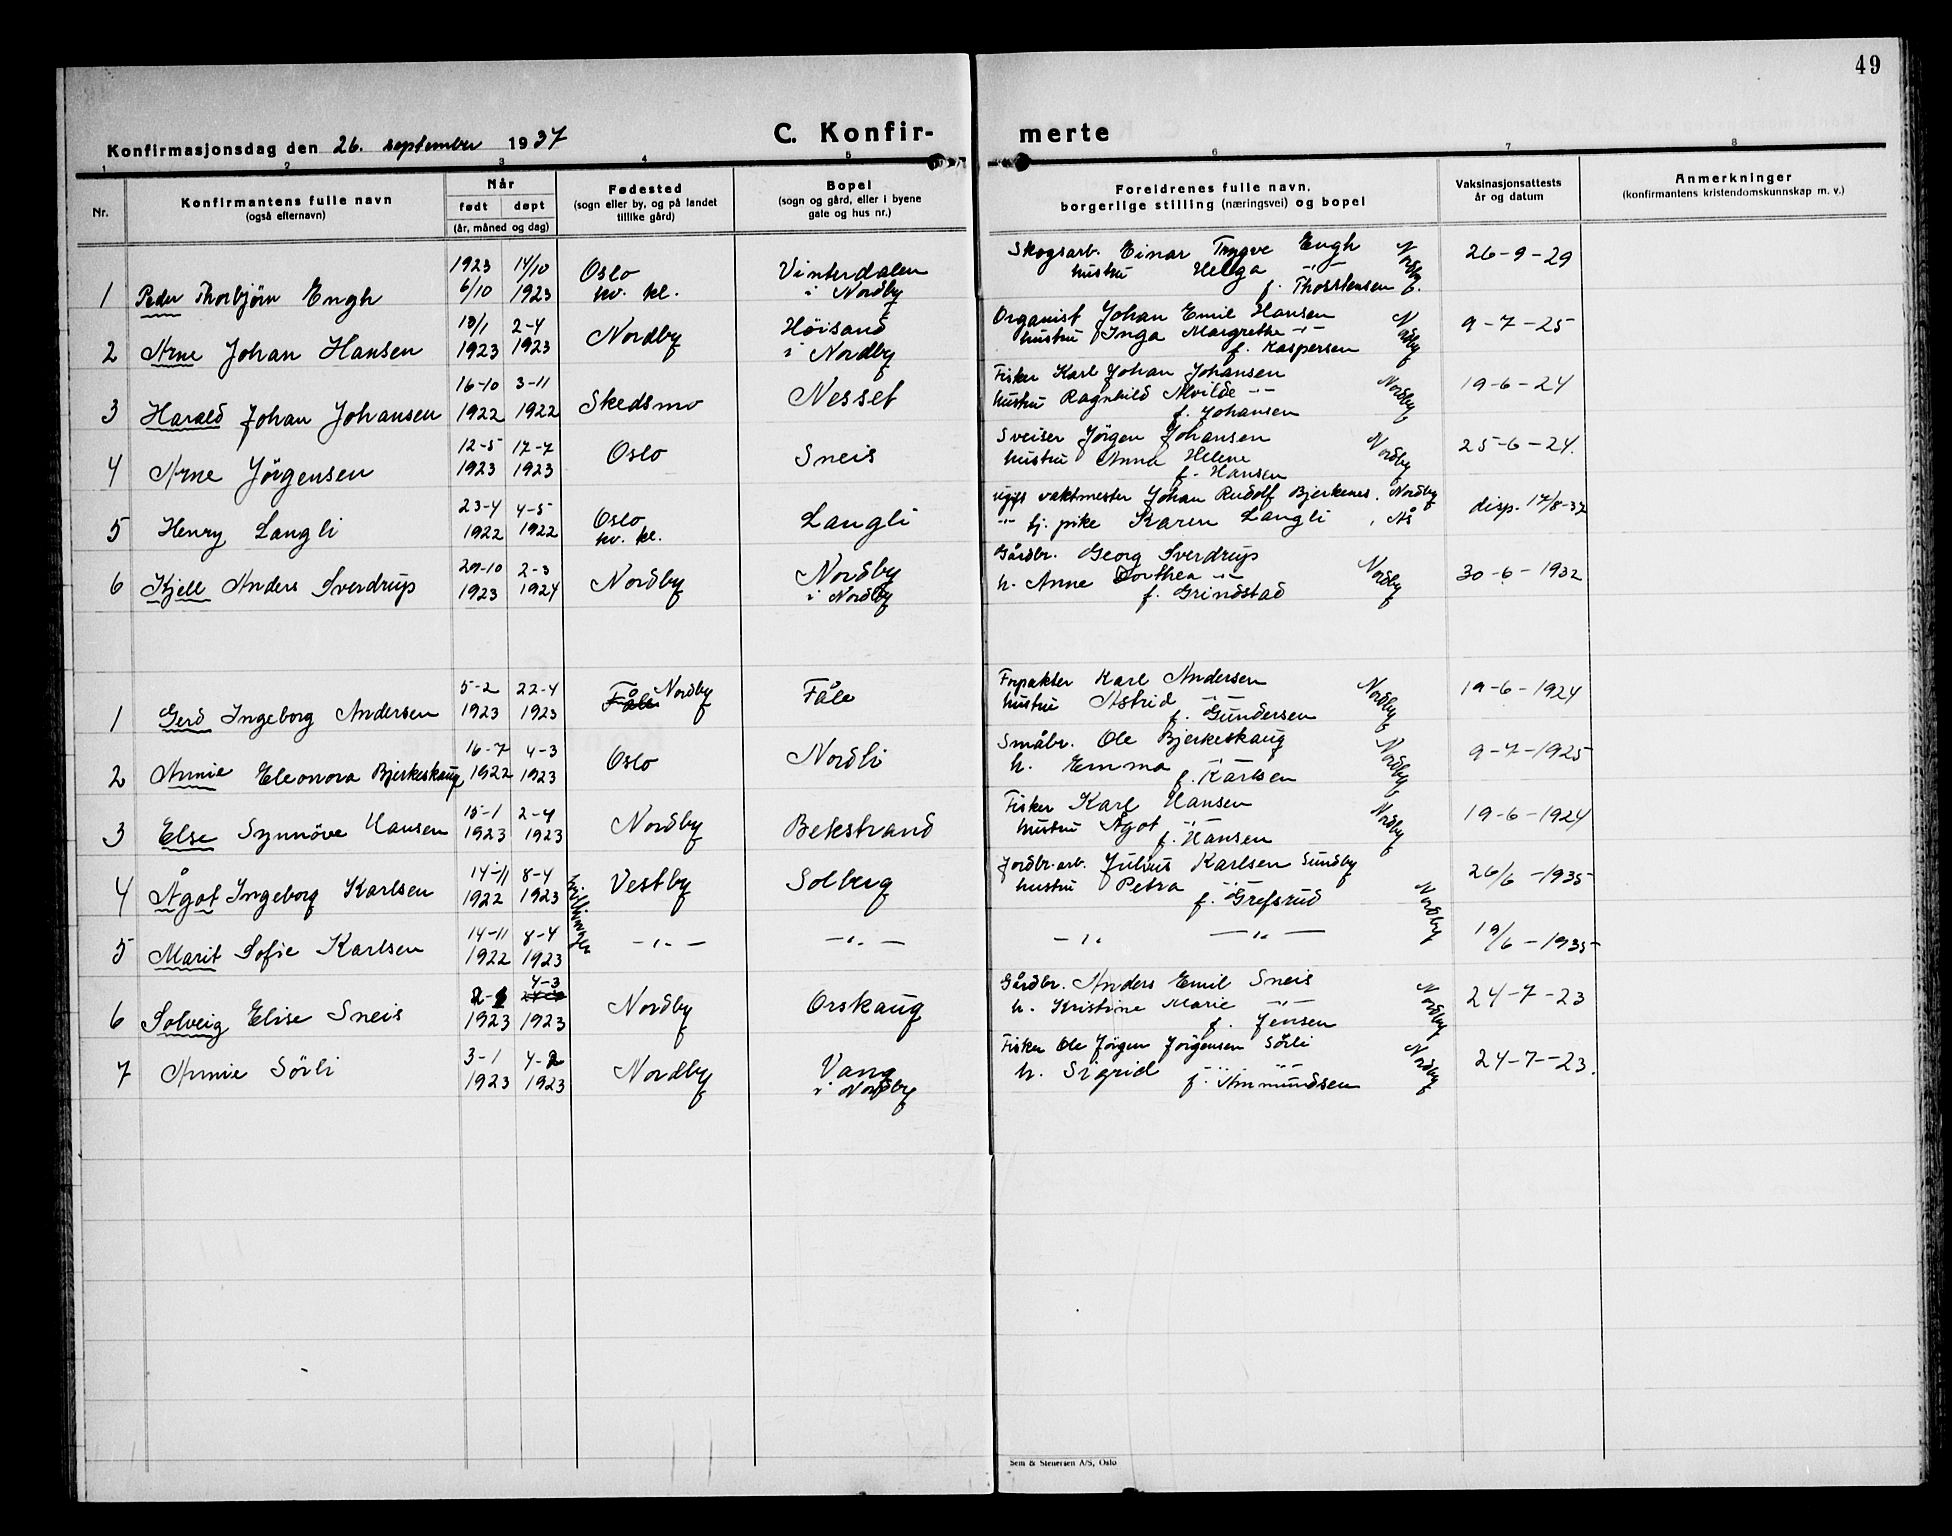 49
Konfirmasjonsdag den 26. september 1937
C. Konfir-
merte
1 2 3 4 5 6 7 8
Nr.
Konfirmantens fulle navn
(også efternavn)
Når
født døpt
(år, måned og dag)
Fødested
(sogn eller by, og på landet
tillike gård)
Bopel
(sogn og gård, eller i byene
gate og hus nr.)
Foreldrenes fulle navn,
borgerlige stilling (næringsvei) og bopel
Vaksinasjonsattests
år og datum
Anmerkninger
(konfirmantens kristendomskunnskap m. v.)
1923 14/10 Oslo Vinterdalen Skogsarb. Einar Trygve Engh Nordby 26-9-29
1 Peder Thorbjørn Engh 6/10 1923 kv. kl. i Nordby hustru Helga -"- f. Thorstensen
10/1 2-4 Nordby Høisand Organist Johan Emil Hansen Nordby 9-7-25
2 Arne Johan Hansen 1923 1923 i Nordby hustru Inga Margrethe -"-
f. Kaspersen
16-10 3-11 Skedsmo Nesset Fisker Karl Johan Johansen Nordby 19-6-24
3 Harald Johan Johansen 1922 1922 hustru Ragnhild Alvilde -"-
f. Johansen
12-5 17-7 Oslo Sneis Sveiser Jörgen Johansen Nordby 25-6-24.
4 Arne Jörgensen 1923 1923 hustru Anna Helene
f. Hansen
23-4 4-5 Oslo Langli ugift vaktmester Johan Rudolf Bjerkenes, Nordby disp. 17/8-37
5 Henry Langli 1922 1922 kv. kl. -"- tj. pike Karen Langli, Ås
20-10 2-3 Nordby Nordby Gårdbr. Georg Sverdrup Nordby 30-6-1932
6 Kjell Anders Sverdrup 1923 1924 i Nordby h. Anne Dorthea -"-
f. Grindstad
5-2 22-4 Fåle Nordby Fåle Forpakter Karl Andersen Nordby 19-6-1924
1 Gerd Ingeborg Andersen 1923 1923 hustru Astrid -"-
f. Gundersen
16-7 4-3 Oslo Nordli Småbr. Ole Bjerkeskaug Nordby 9-7-1925
2 Annie Eleonora Bjerkeskaug 1922 1923 h. Emma -"-
f. Karlsen
15-1 2-4 Nordby Bekstrand Fisker Karl Hansen Nordby 19-6-1924
3 Else Synnöve Hansen 1923 1923 hustru Ågot -"-
f. Hansen
14-11 8-4 Vestby Solberg Jordbr.arb. Julius Karlsen Sundby Nordby 26/6-1935
4 Ågot Ingeborg Karlsen 1922 1923 tvillinger hustru Petra -"-
f. Grefsrud
14-11 8-4 -"- -"- -"- -"- 19/6-1935
5 Marit Sofie Karlsen 1922 1923
4-3
2-1 Nordby Orskaug Gårdbr. Anders Emil Sneis Nordby 24-7-23
6 Solveig Elise Sneis 1923 1923 h. Kristine Marie -"-
f. Jensen
3-1 4-2 Nordby Vang Fisker Ole Jørgen Jörgensen Sörli Nordby 24-7-23.
7 Annie Sörli 1923 1923 i Nordby h. Sigrid -"-
f. Ammundsen
Sem & Stenersen A/S, Oslo